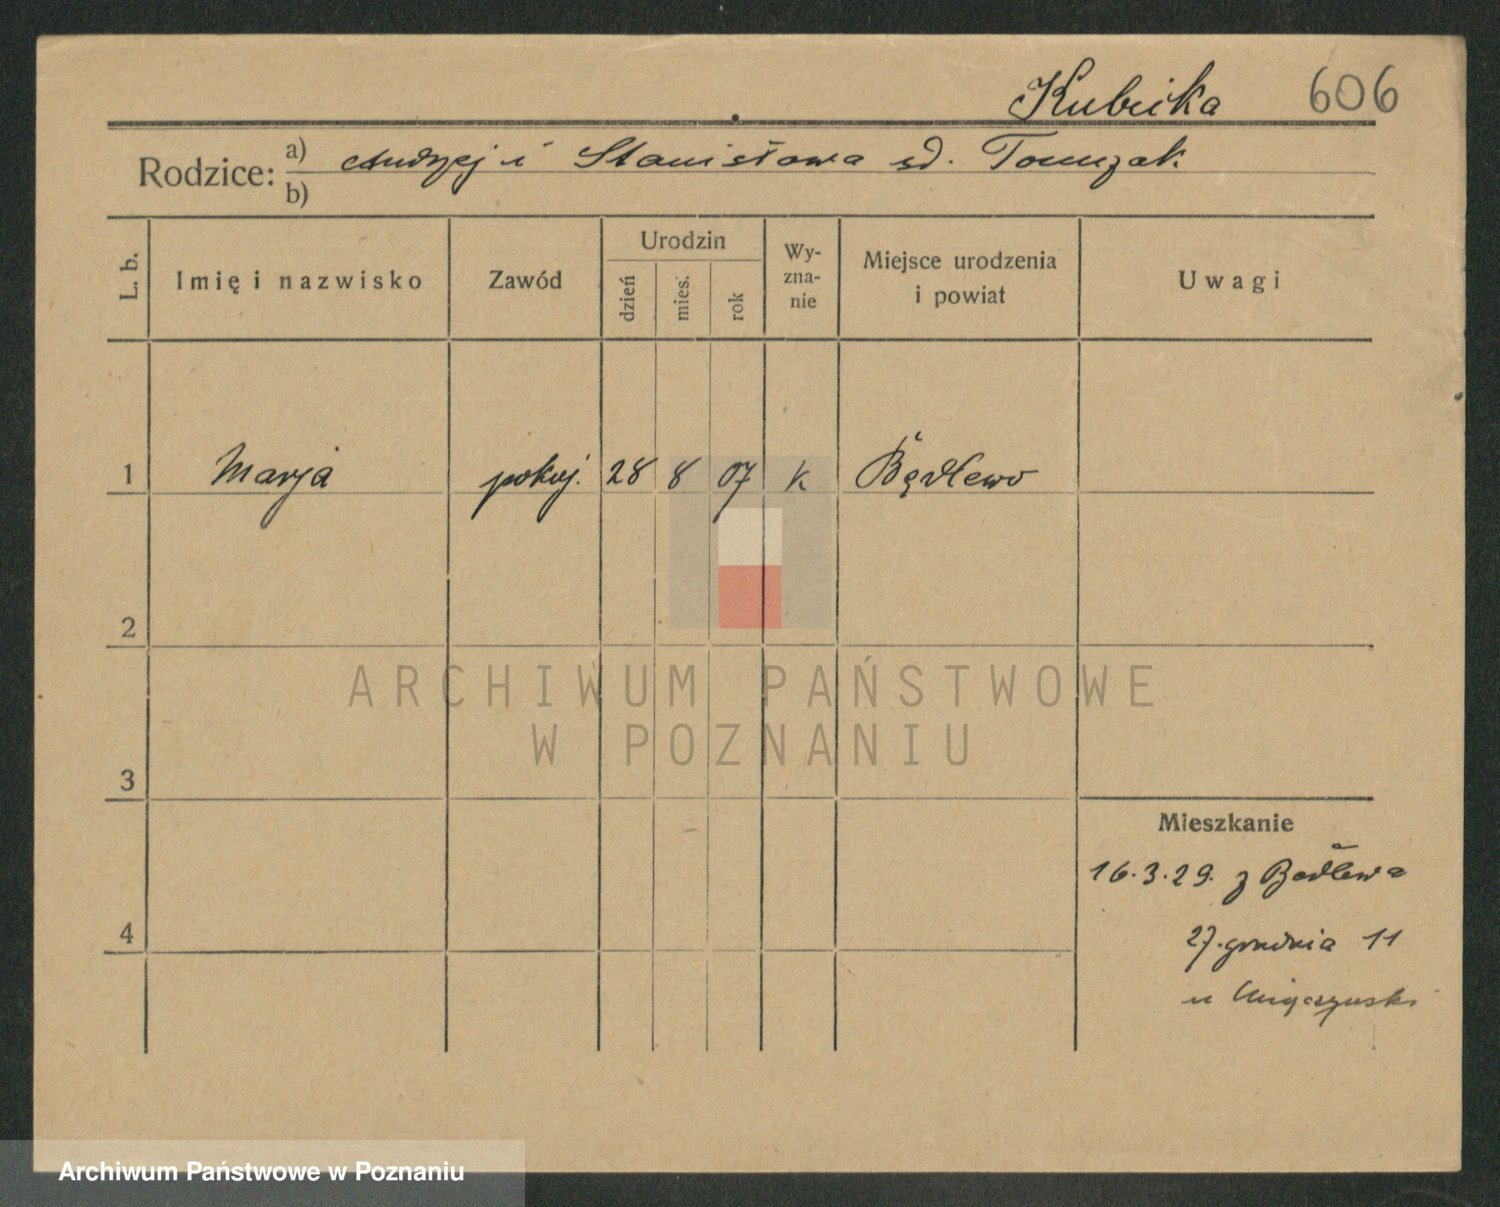 Kubicka 606
Rodzice: a) Andrzej i Stanisława zd. Tomczak
b)
L. b. Imię i nazwisko Zawód Urodzin dzień mies. rok Wy-zna-nie Miejsce urodzenia i powiat Uwagi
1 Marja pokoj. 28 8 07 k Będlewo
2
ARCHIWUM PAŃSTWOWE
W POZNANIU
3
Mieszkanie
16.3.29. z Będlewa
4
27. grudnia 11
u
Archiwum Państwowe w Poznaniu